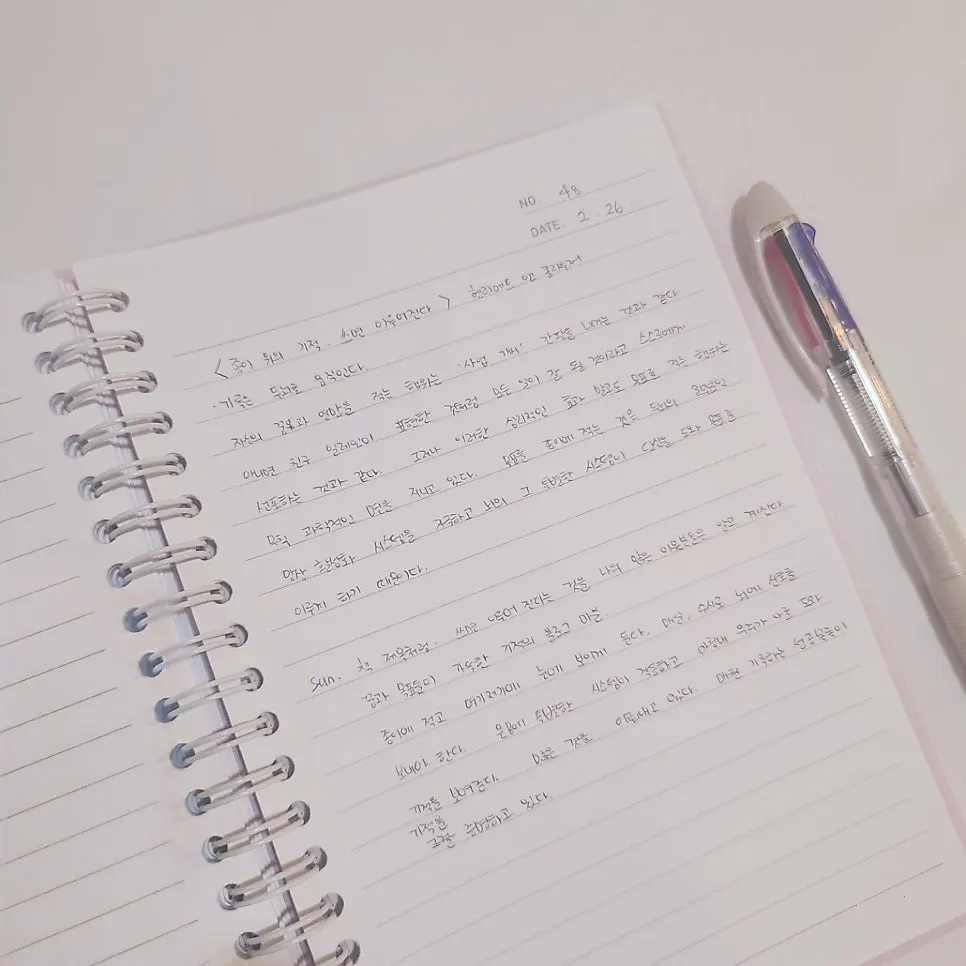 NO. 48
DATE. 2. 26
<종이 위의 기적, 쓰면 이루어진다> 헨리에트 앤 클라우저
· 기록은 두뇌를 움직인다.
자신의 꿈과 열망을 적는 행위는 '사업 개시' 간판을 내거는 것과 같다
아니면 친구 일레인이 표현한 것처럼 모든 일이 잘 될 것이라고 스스로에게
선포하는 것과 같다. 그러나 이러한 심리적인 효과 말고도 목표를 적는 행위는
과학적인 면을 지니고 있다. 목표를 종이에 적는 것은 두뇌의 일부분인
망상 활성화 시스템을 자극하고 뇌의 그 특별한 시스템이 당신을 도와 목표를
이루게 하기 때문이다.
sun. 책 제목처럼, 쓰면 이루어 진다는 것을 나의 많은 이웃분들은 알고 계신다
꿈과 목표들이 가득한 기적의 블로그 마을
종이에 적고 여기저기에 눈에 보이게 둔다. 매일, 수시로 뇌에 신호를
보내야 한다. 특별한 시스템이 작동하고 우주가 나를 도와
기적을 보여준다. 많은 것을 이루내고 있다. 매번 기록하는 성공한들이
기적을
그걸 증명하고 있다.